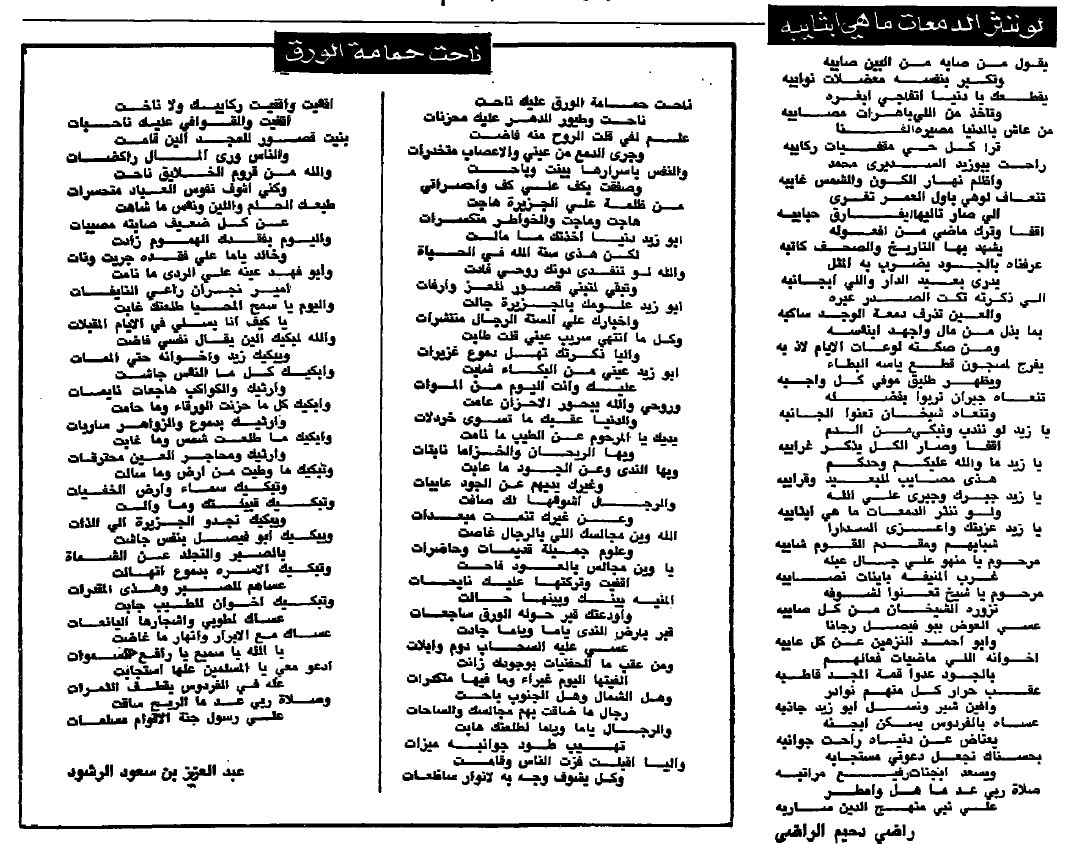 لو ننثر الدمعات ما هي ابثايبه
يقول من صابه من البين صايبه
وتكبر بنفسه معضلات نوايبه
يقطعك يا دنيا أتفلجي ابغره
وتاخذ من اللي باهرات مصايبه
من عاش بالدنيا مصيره الفنا
ترا كل حي مقفيات ركايبه
راحت ببوزيد السديري محمد
واظلم نهار الكون والشمس غايبه
تنعاف لوهي باول العمر تغري
الي صار تاليها يفارق حبايبه
اقفا وترك ماضي من افعوله
يشهد بها التاريخ والصحف كاتبه
عرفناه بالجود يضرب به المثل
يدري بعبيد الدار واللي أبجانبه
الي ذكرته تكت الصدر عبره
والعين تذرف دمعة الوجد ساكبه
بما بذل من مال واجهد ابنفسه
ومن صكته لوعات الايام لاذ به
يفرج لسجون قطع ياسه البطاء
ويظهر طليق موفي كل واجبه
تنعاه جيران تربوا بفضله
وتنعاه شيخان تعنوا الجانبه
يا زيد لو نندب ونبكي من الدم
أقفا وصار الكل يذكر غرايبه
يا زيد ما والله عليكم وحدكم
هذى مصايب للبعيد وقرايبه
يا زيد جبرك وجبرى على الله
ولو ننثر الدمعات ما هي ابثايبه
يا زيد عزيتك واعزى السدارا
شبابهم ومقدم القوم شايبه
مرحوم يا منهو على جال عيله
غرب المنيفه باينات نصايبه
مرحوم يا شيخ تعنوا لشوفه
تزوره الشيخان من كل صايبه
عسى العوض ببو فيصل رجانا
وابو احمد للنزهين عن كل عايبه
اخوانه اللي ماضيات فعالهم
بالجود عدوا قمة المجد قاطبه
عقب حرار كل منهم نوادر
وافين شبر ونسل ابو زيد جاذبه
عساه بالفردوس يسكن ابجنه
يعتاض عن دنياه راحت جوانبه
بحسناك تجعل دعوتي مستجابه
ويسعد ابجنات رفيع مراتبه
صلاة ربي عد ما هل وامطر
على نبي منهج الدين سايره
راضي دحيم الراضي
ناحت حمامة الورق
ناحت حمامة الورق عليك ناحت
ناحت وطيور الدهر عليك محزنات
علم لفي قلت الروح منه فاضت
وجرى الدمع من عيني والاعصاب متخدرات
والنفس باسرارها بينت وباحت
وصفقت بكف على كف واحسراتي
من ظلمة على الجزيرة هاجت
هاجت وماجت والخواطر متكسرات
ابو زيد دنيا أخذتك ما مالت
لكن هذى سنة الله في الحياة
والله لو تنفدى دونك روحي فادت
وتبقي لتبني قصور للعز وارفات
ابو زيد علومك بالجزيرة جالت
واخبارك على السنة الرجال منتشرات
وكل ما انتهى سريب عيني قلت طابت
واليا ذكرتك تهل دموع غزيرات
ابو زيد عيني من البكاء شابت
عليك وانت اليوم من الموات
وروحي والله ببحور الاحزان عامت
والدنيا عقبك ما تسوى خردلات
يديك يا المرحوم عن الطيب ما نامت
وبها الريحان والخزاما نابتات
وبها الندى وعن الجود ما عابت
وغيرك يديهم عن الجود عايبات
والرجل أشوفها لك صافت
وعن غيرك تنعت مبعدات
الله وين مجالسك اللي بالرجال غاصت
وعلوم جميلة قديمات وحاضرات
يا وين مجالس بالعود فاحت
أقفيت وتركتها عليك نايحات
المنيه بينك وبينها حالت
وأودعتك قبر حوله الورق ساجعات
قبر بارض للندى ياما وياما جادت
عسى عليه السحاب دوم وابلات
ومن عقب ما الحفنيات بوجودك زانت
الفيتها اليوم غبراء وما فيها متكدرات
وهل الشمال وهل الجنوب باحت
رجال ما ضاقت بهم مجالسك والساحات
والرجال ياما وياما لطلعتك هابت
تهيب طود جوانبه ميزات
واليا اقبلت فزت الناس وقامت
وكل يشوف وجه به لانوار ساطعات
اقفيت واقفيت ركابيك ولا ناخت
أقفيت والقوافي عليك ناحبات
بنيت قصور للمجد ألين قامت
والناس ورى المال راكضات
والله من قروم الخلايق ناحت
وكني اشوف نفوس العباد متحسرات
طبعك الحلم واللين ونفس ما شاهت
عن كل ضعيف صابته مصيبات
واليوم بفقدك الهموم زادت
وخالد ياما على فقده جريت ونات
وأبو فهد عينه على الردى ما نامت
أمير نجران راعي النايفات
واليوم يا سمح المحيا طلعتك غابت
يا كيف أنا بسلى في الايام المقبلات
والله لبكيك الين يقال نفسي فاضت
ويبكيك زيد واخوانه حتى الممات
وابكيك كل ما النفس جاشت
وأرثيك والكواكب هاجعات نايمات
وابكيك كل ما حزنت الورقاء وما حامت
وأرثيك بدموع والزواهر ساريات
وابكيك ما طلعت شمس وما غابت
وأرثيك ومحاجر العين محترقات
وتبكيك ما وطيت من ارض وما سالت
وتبكيك سماء وأرض الخفيات
وتبكيك قبيلتك وما والت
ويبكيك نجدو الجزيرة الي الذات
ويبكيك أبو فيصل بنفس جاشت
بالصبر والتجلد عن الشماة
وتبكيك الاسره بدموع أنهالت
عساهم للصبر وهذى المقدرات
وتبكيك اخوان للطيب جابت
عساك لطوبى واشجارها اليانعات
عساك مع الابرار وانهار ما غاضت
يا الله يا سميع يا رافع السموات
ادعو معي يا المسلمين علها استجابت
عله في الفردوس يقطف الثمرات
وصلاة ربي عد ما الريح ساقت
على رسول جنة الاقوام مسلمات
عبد العزيز بن سعود الرشود